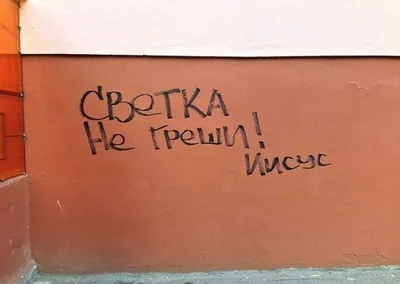 СВЕТКА
Не Греши!
Иисус